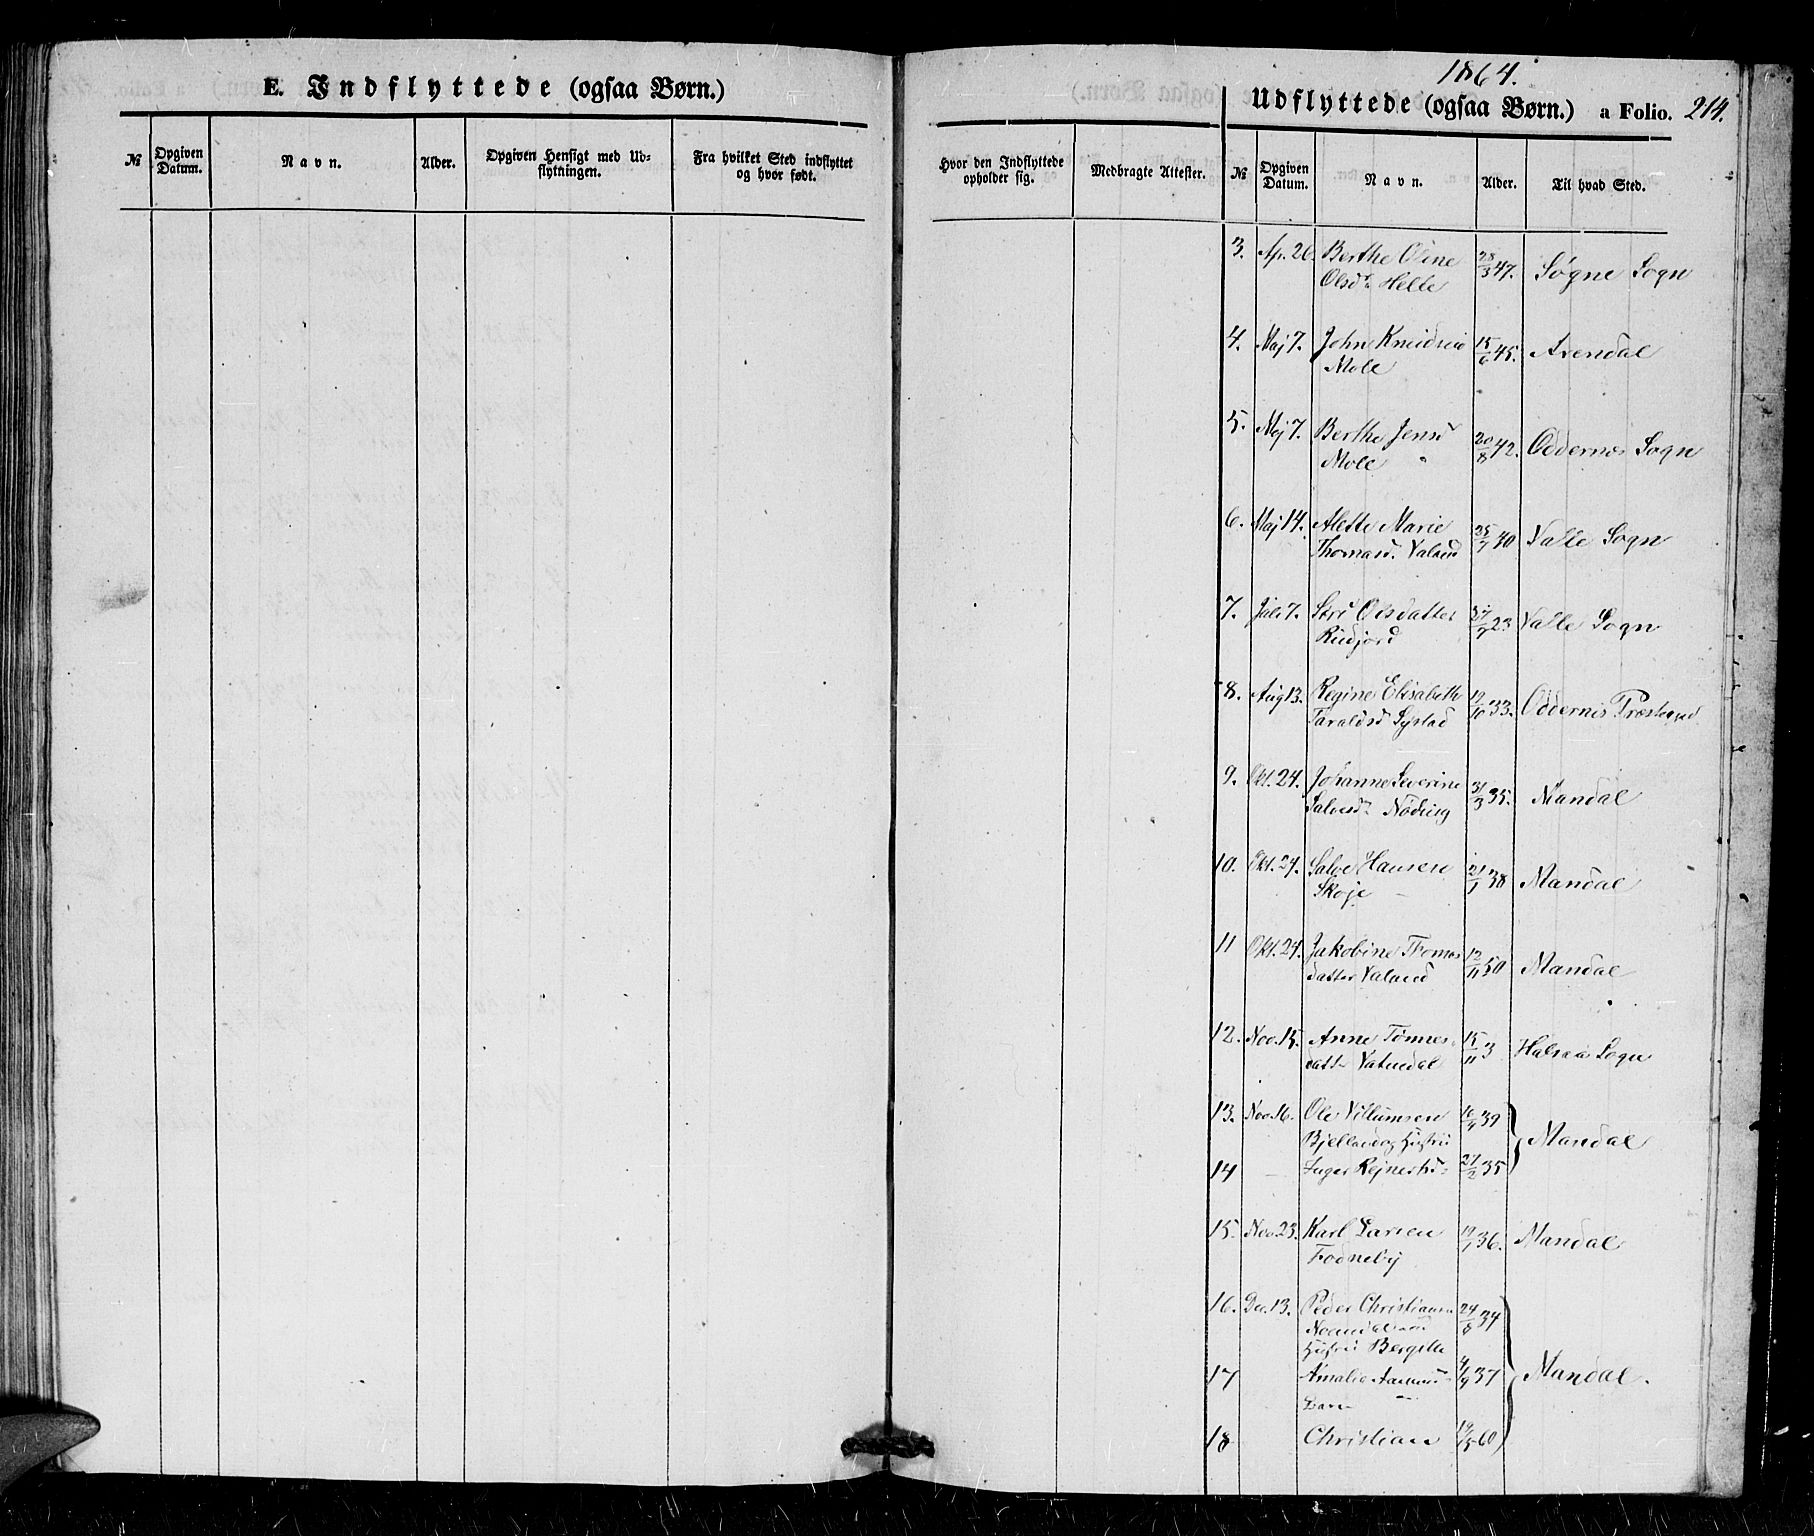 E. Indflyttede (ogsaa Børn.)
№ Opgiven Datum. Navn. Alder. Opgiven Hensigt med Udflytningen. Fra hvilket Sted indflyttet og hvor født.
1864.
Udflyttede (ogsaa Børn.) a Folio. 214.
Hvor den Indflyttede opholder sig. Medbragte Attester. № Opgiven Datum. Navn. Alder. Til hvad Sted.
3. Ap. 26. Berthe Oline 28/3 47. Søgne Sogn
Olsd. Helle
4. Maj 7. John Knudsen 15/6 45. Arendal
Mole
5. Maj 7. Berthe Jensd 20/8 42. Oddernes Sogn
Mole
6. Maj 14. Alette Marie 25/7 40 Valle Sogn
Thomasd. Valand
7. Juli 7. Siri Olsdatter 27/7 23 Valle Sogn
8. Aug 13. Regine Elisabeth 12/10 33. Oddernes Præstegjeld
Taraldsd
9. Okt. 24. Johanne Severine 31/3 35. Mandal
Salvesd. Nøding
10. Okt. 24. Salve Hansen 21/1 38 Mandal
Skoje
11 Okt. 24. Jakobine Thomas 12/11 50 Mandal
datter Valand
12. Nov. 15. Anne Tønnes- 15/11 3 Halsaa Sogn
datter Vatnedal
13. Nov. 16. Ole Villumsen 16/4 39 Mandal
Bjelland og Hustru
14 – Inger 27/2 35
15. Nov. 23. Karl Larsen 19/1 36. Mandal
Fodneby
16. Dec. 13. Peder Christiansen 24/8 34
Hustru Bergitte
17 Amalie 4/9 37 Mandal.
18 Christian 60